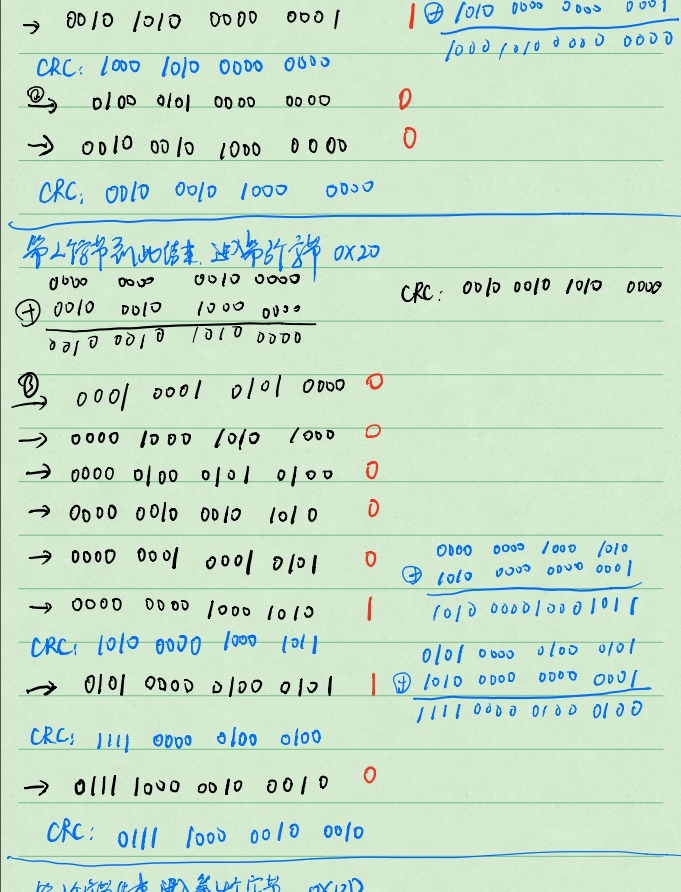 → 0010 1010 0000 0001 1 ⊕ 1010 0000 0000 0001
1000 1010 0000 0000
CRC: 1000 1010 0000 0000
② → 0100 0101 0000 0000 0
→ 0010 0010 1000 0000 0
CRC: 0010 0010 1000 0000
字节到此结束. 进入第3个字节 0X20
0000 0000 0010 0000
CRC: 0010 0010 1010 0000
⊕ 0010 0010 1000 0000
0010 0010 1010 0000
③ → 0001 0001 0101 0000 0
→ 0000 1000 1010 1000 0
→ 0000 0100 0101 0100 0
→ 0000 0010 0010 1010 0
→ 0000 0001 0001 0101 0
0000 0000 1000 1010
⊕ 1010 0000 0000 0001
1010 0000 1000 1011
→ 0000 0000 1000 1010 1
CRC: 1010 0000 1000 1011
0101 0000 0100 0101
⊕ 1010 0000 0000 0001
1111 0000 0100 0100
→ 0101 0000 0100 0101 1
CRC: 1111 0000 0100 0100
→ 0111 1000 0010 0010 0
CRC: 0111 1000 0010 0010